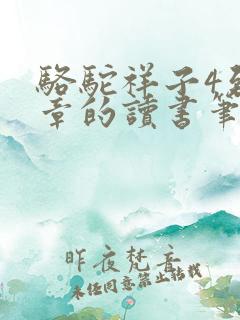 駱駝祥子4至
章的讀書筆
昨夜梵音
未经同意禁止转载